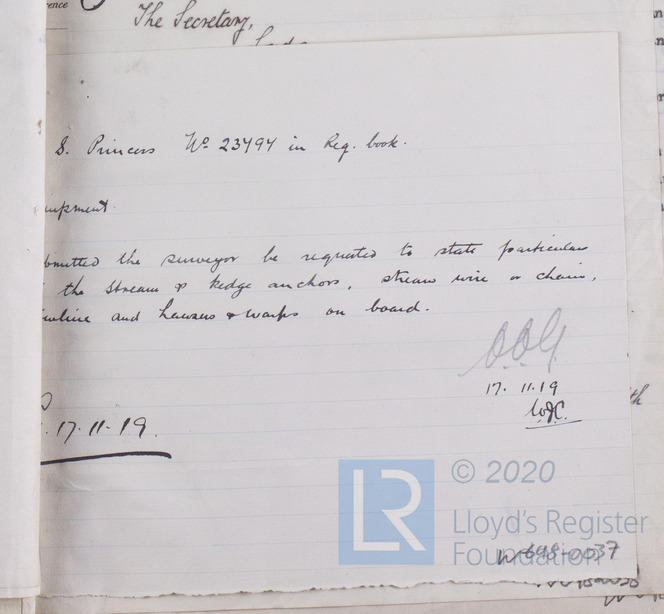 The Secretary,
S. Princess No. 23494 in Reg. book.
uipment
bmitted the surveyor be requested to state particulars
the stream & kedge anchors, stream wire or chain,
wline and hawsers & warps on board.
17. 11.19
17.11.19.
LR
© 2020
Lloyd's Register
Foundation
W698-0037